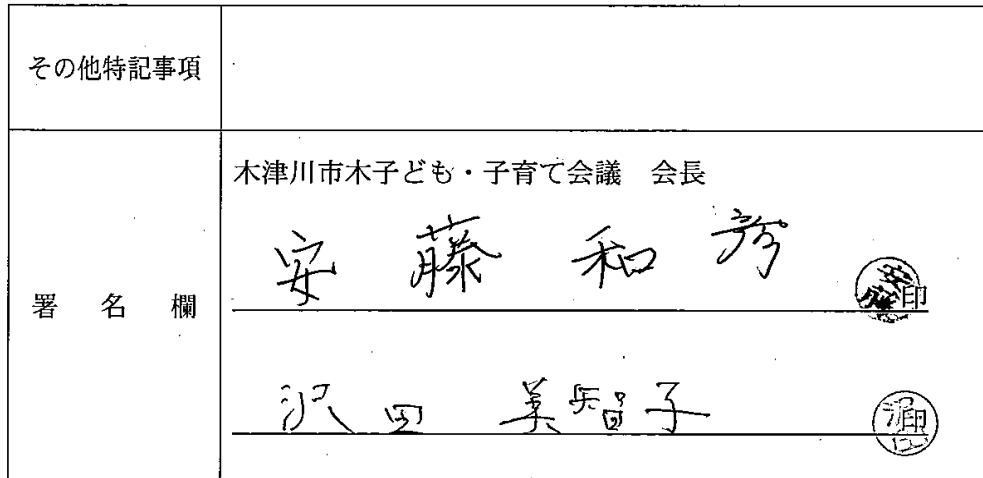 その他特記事項
木津川市木子ども・子育て会議 会長
安藤 和彦 印
署 名 欄
沢田 美智子 印